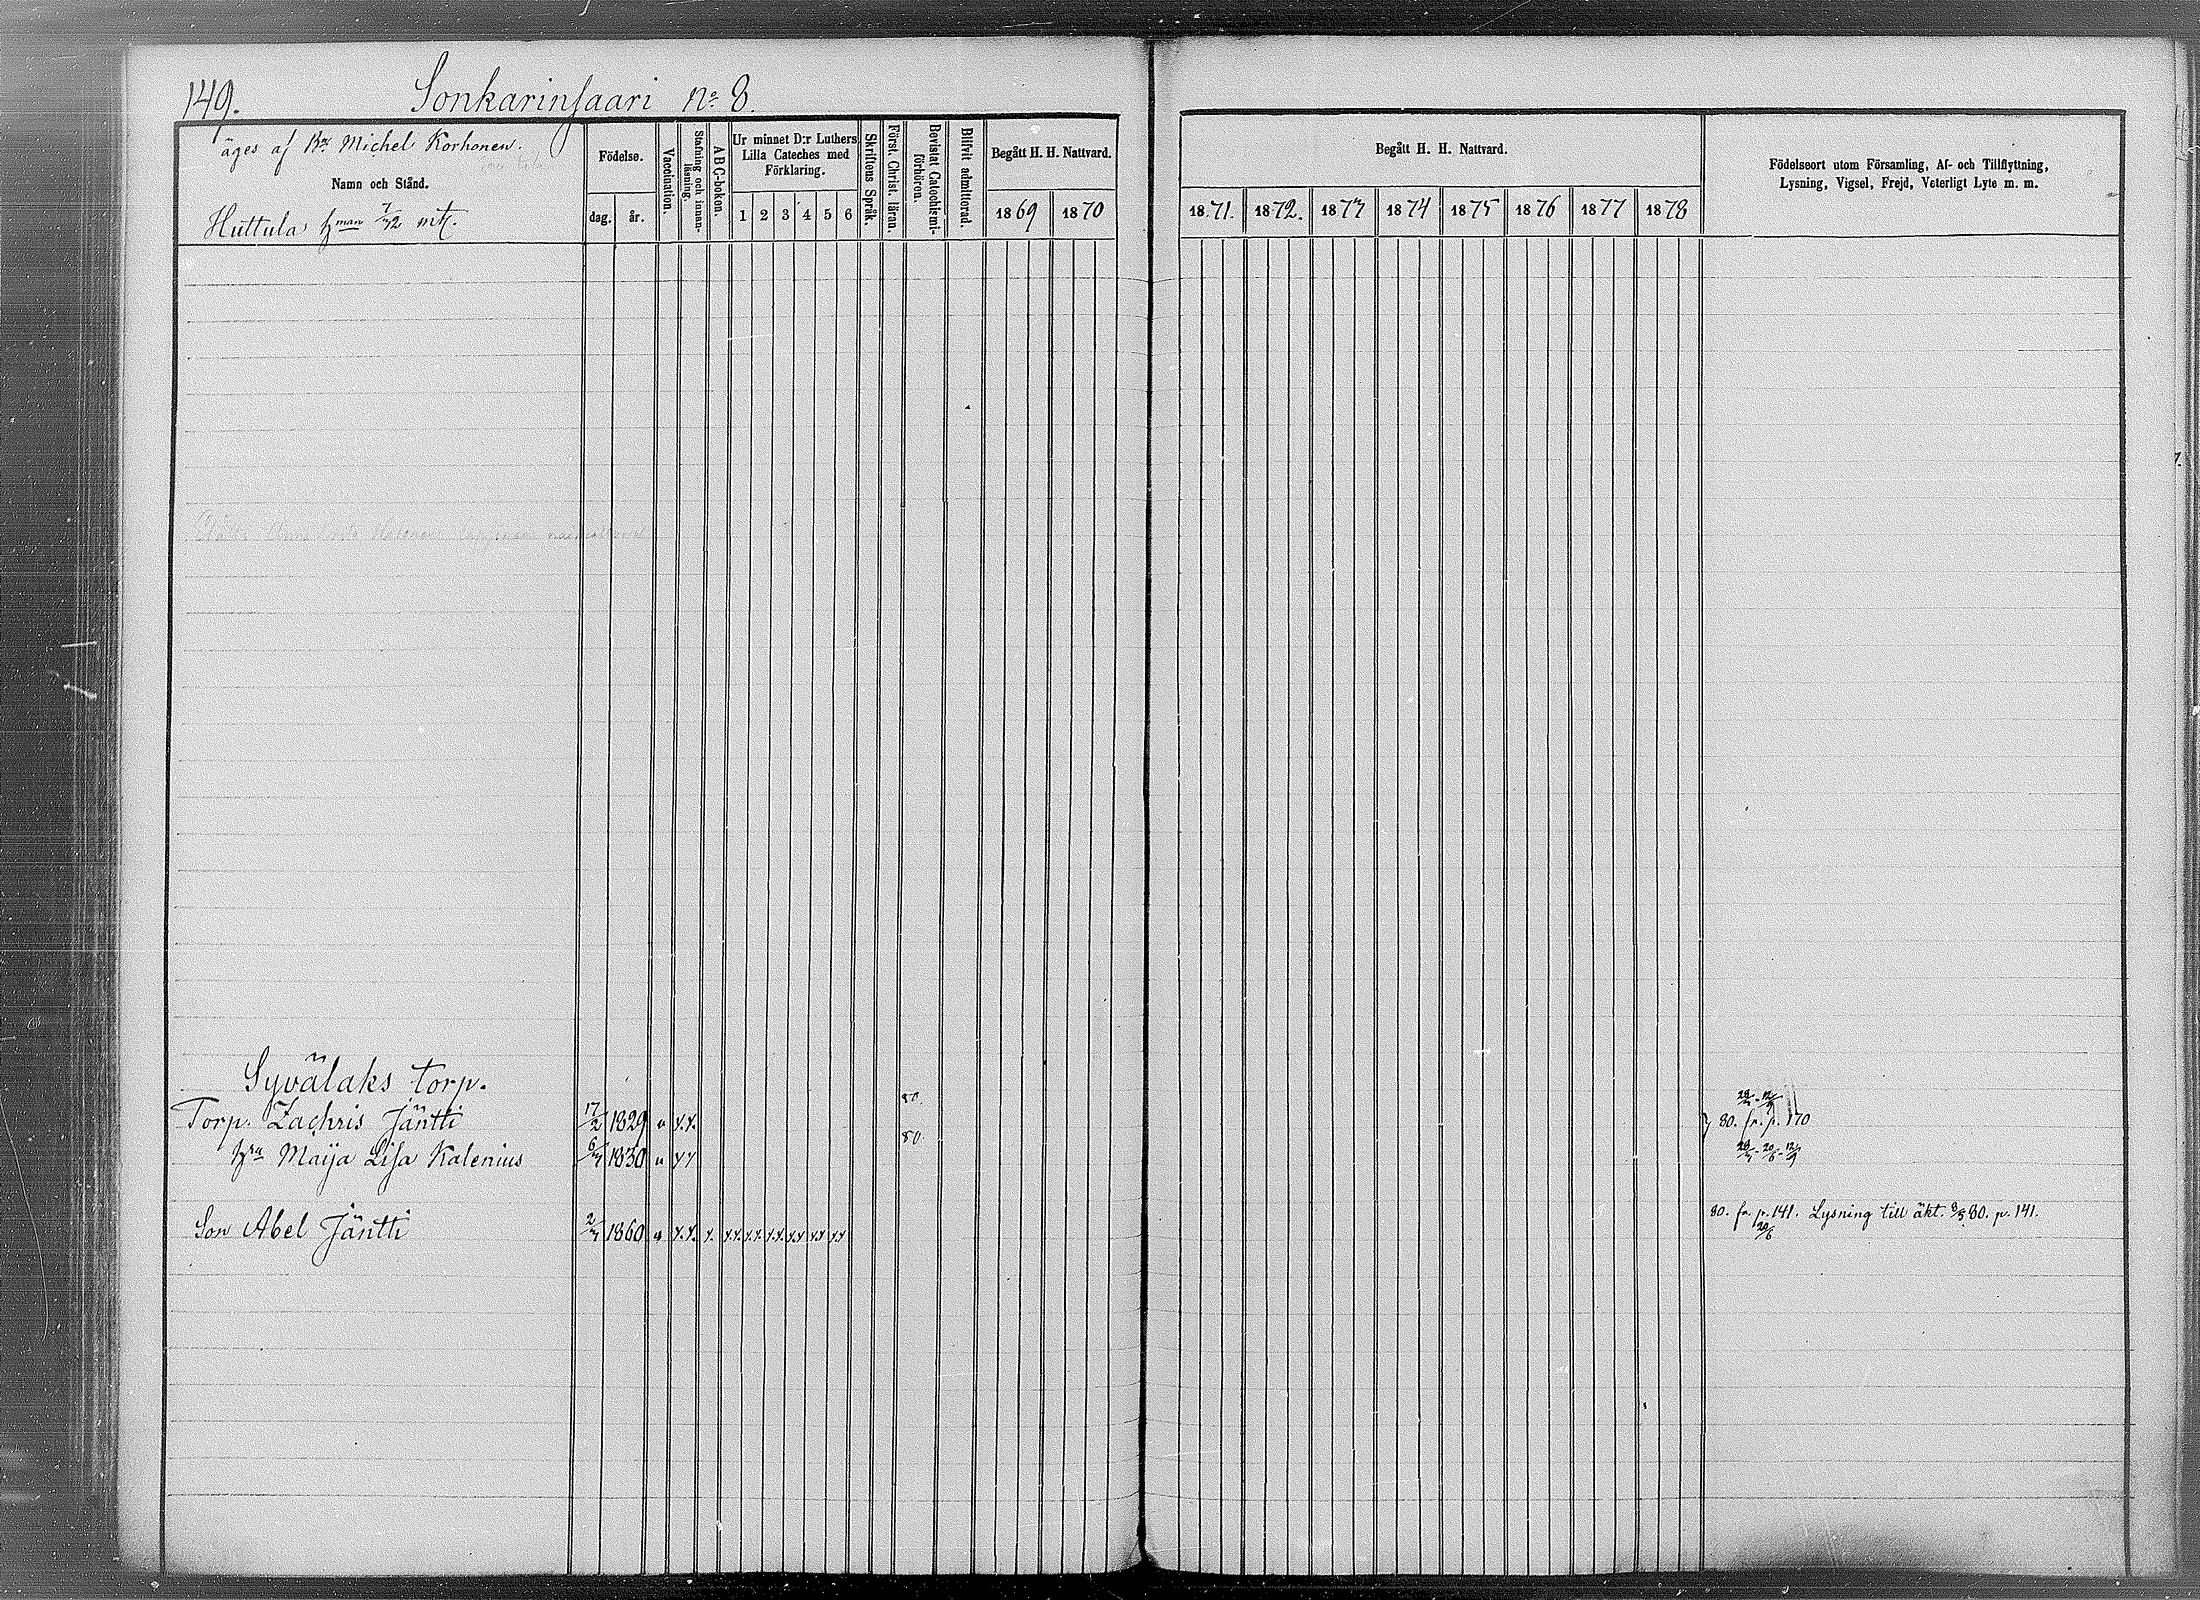 149. Sonkarinsaari No 8.
äges af Bn Michel Korhonen.
Namn och Stånd.
Huttula hman 7/72 mtl.
Födelse.
dag. år.
Vaccination.
Stafning och innanläsning.
A B C-boken.
Ur minnet D:r Luthers Lilla Cateches med Förklaring.
1 2 3 4 5 6
Skriftens Språk.
Först. Christ. läran.
Bevistat Catechismi-förhören.
Blifvit admitterad.
Begått H. H. Nattvard.
1869 1870
Begått H. H. Nattvard.
1871. 1872. 1873 1874 1875 1876 1877 1878
Födelseort utom Församling, Af- och Tillflyttning,
Lysning, Vigsel, Frejd, Veterligt Lyte m. m.
Syvälaks torp.
Torp. Zachris Jäntti 17/2 1829 v x.x. 80. 80. fr. p. 170
hru Maija Lisa Kalenius 1830 v x x 80.
Son Abel Jäntti 1860 v x.x. x. x.x x.x. x.x. x.x x.x x.x 80. fr. p. 141. Lysning till äkt. 80. p. 141.
20/6